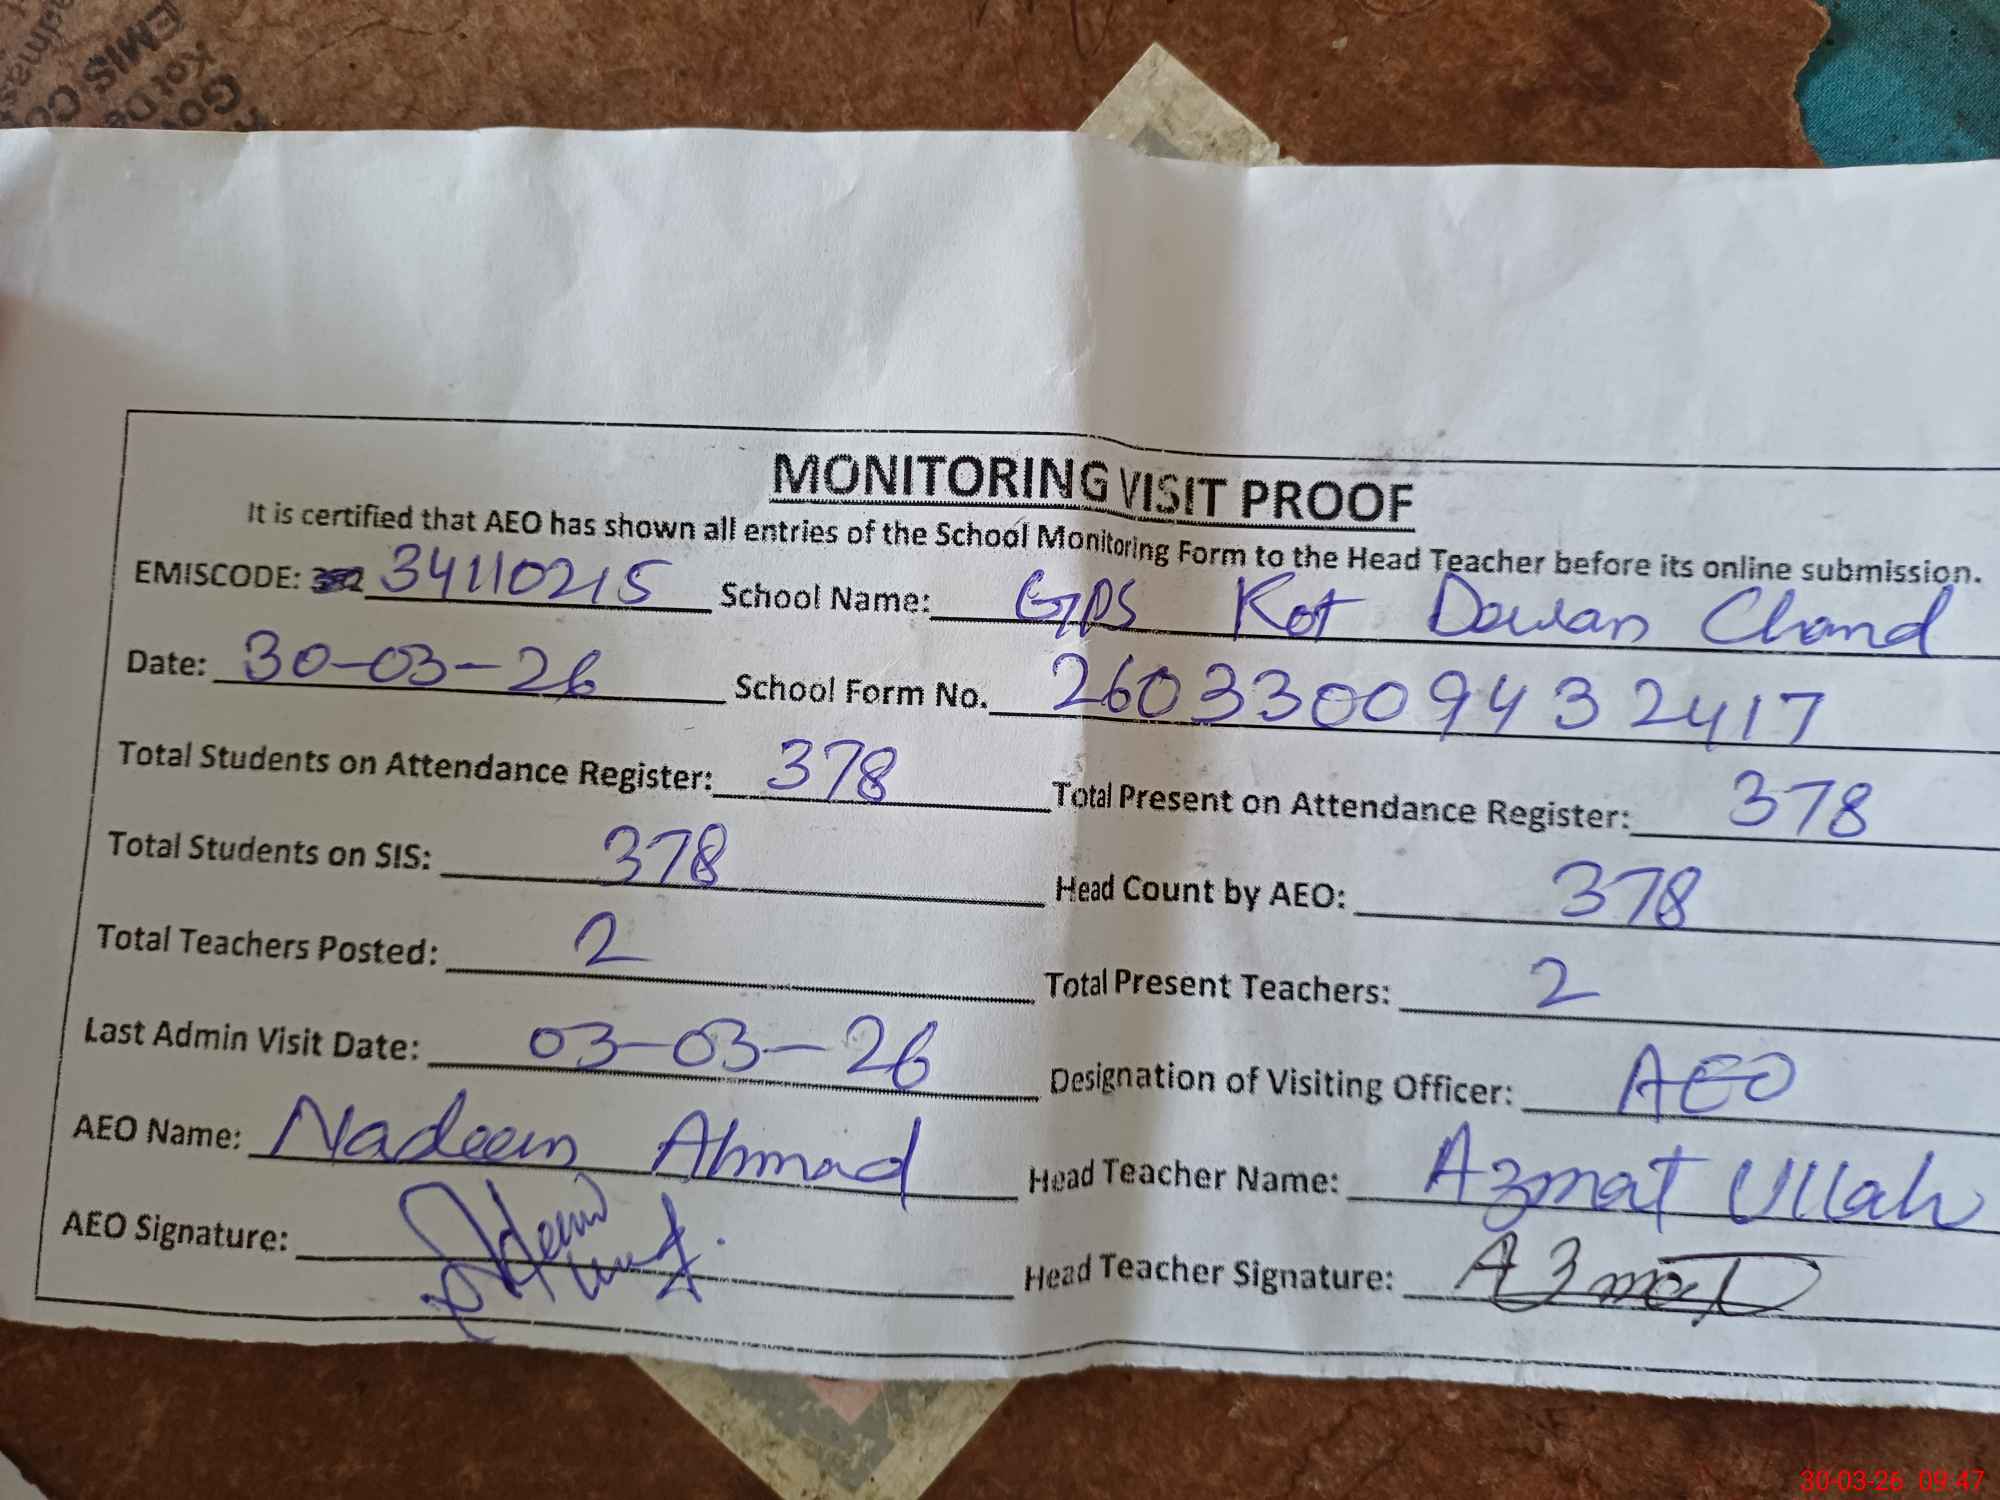 Govt
Kot De
EMIS CO
MONITORING VISIT PROOF
It is certified that AEO has shown all entries of the School Monitoring Form to the Head Teacher before its online submission.
EMISCODE: 34110215 School Name: GPS Kot Dawan Chand
Date: 30-03-26 School Form No. 2603300943 2417
Total Students on Attendance Register: 378 Total Present on Attendance Register: 378
Total Students on SIS: 378 Head Count by AEO: 378
Total Teachers Posted: 2 Total Present Teachers: 2
Last Admin Visit Date: 03-03-26 Designation of Visiting Officer: AEO
AEO Name: Nadeem Ahmad Head Teacher Name: Azmat Ullah
AEO Signature: Head Teacher Signature: Azmat
30-03-26 09:47